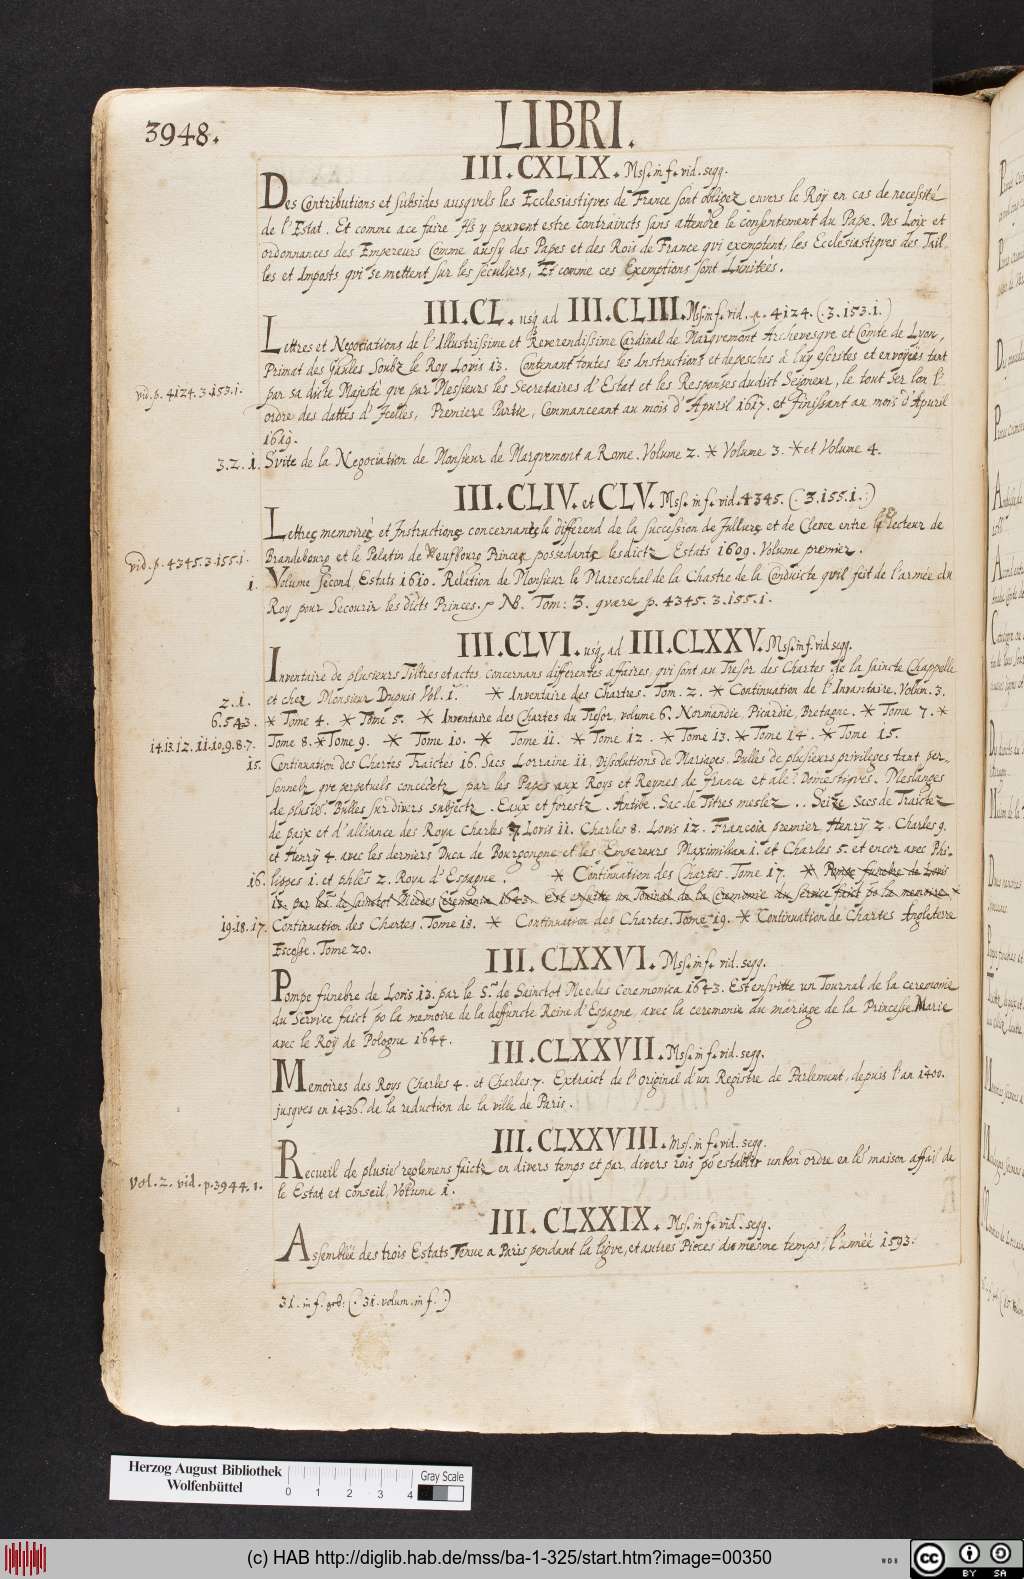 3948.
LIBRI.
III. CXLIX. Mss. in f. vid. segg.
Des Contributions et subsides ausquels les Ecclesiastiques de France sont obligez envers le Roÿ en cas de necessité
de l'Estat. Et comme a ce faire Ils y peuvent estre contraincts sans attendre le consentement du Pape. Des Loix et
ordonnances des Empereurs Comme aussy des Papes et des Rois de France qvi exemptent, les Ecclesiastiqves des Tail-
les et Imposts qvi se mettent sur les seculiers, Et comme ces Exemptions sont Limitées.
III. CL. usq ad III. CLIII. Mss. in f. vid. p. 4124. (. 3. 153. 1. )
Lettres et Negotiations de l'Illustrissime et Reverendissime Cardinal de Marquemont Archevesqve et Comte de Lyon,
Primat des Gaules Soubz le Roy Lovis 13. Contenant toutes les Instructions et depesches à luy escrites et envoyées tant
vid. p. 4124. 3. 153. 1.
par sa dite Majesté qve par Messieurs les Secretaires d'Estat et les Responses dudict Seigneur, le tout
ordre des dattes d'Icelles, Premiere Partie, Commanceant au mois d'Apuril 1617. et finissant au mois d'Apuril
1619.
3. 2. 1. Svite de la Negociation de Monsieur de Marqvemont a Rome. Volume 2. * Volume 3. * et Volume 4.
III. CLIV. et CLV. Mss. in f. vid. 4345. (. 3. 155. 1. )
Lettres memoires et Instructions concernants le differend de la succession de Julliers et de Cleve entre
vid. p. 4345. 3. 155. 1.
Brandebourg et le Palatin de Neufbourg Princes possedants lesdictz Estats 1609. Volume premier.
1. Volume second, Estats 1610. Relation de Monsieur le Mareschal de la Chastre de la Conduicte qvil feit de l'armée du
Roy pour Secourir lesdicts Princes. NB. Tom: 3. qvære p. 4345. 3. 155. 1.
III. CLVI. usq ad III. CLXXV. Mss. in f. vid segg.
Inventaire de plusieurs Tiltres et actes concernans differentes affaires, qvi sont au Tresor des Chartes de la saincte Chappelle
2. 1. et chez Monsieur Dupuis Vol. 1. * Inventaire des Chartes. Tom. 2. * Continuation de l'Inventaire. Volum. 3.
6. 5. 4. 3. * Tome 4. * Tome 5. * Inventaire des Chartes du Tresor, volume 6. Normandie, Picardie, Bretagne. * Tome 7. *
14. 13. 12. 11. 10. 9. 8. 7. Tome 8. * Tome 9. * Tome 10. * Tome 11. * Tome 12. * Tome 13. * Tome 14. * Tome 15.
15. Continuation des Chartes Traictés 16. Sacs Lorraine 11. Dissolutions de Mariages. Bulles de plusieurs privileges tant per-
sonnelz qve perpetuels concedetz par les Papes aux Roys et Reynes de France et Domestiqves. Meslanges
de Bulles sur divers subjectz. Eaux et forestz. Sac de Titres meslez .. Seize Sacs de Traictez
de paix et d'alliance des Roys Charles 7. Lovis 11. Charles 8. Lovis 12. Francois premier, Henrÿ 2. Charles 9.
et Henrÿ 4. avec les derniers Ducs de Bourgongne et les Empereurs Maximilian 1. et Charles 5. et encor avec Phi-
16. lippes 1. et 2. Roys d'Espagne. * Continuation des Chartes. Tome 17. * Pompe funebre de Lovis
13. par de Sainctot Ceremonie 1643. Est ensuitte un Tournal de la Ceremonie du Service faict la memoire *
19. 18. 17. Continuation des Chartes. Tome 18. * Continuation des Chartes. Tome 19. * Continuation de Chartes Angleterre
Escosse. Tome 20.
III. CLXXVI. Mss. in f. vid. segg.
Pompe funebre de Lovis 13. par le de Sainctot Ceremonica 1643. Est ensvitte un Tournal de la ceremonie
du Service faict la memoire de la deffuncte Reine d'Espagne, avec la ceremonie du mariage de la Princesse Marie
avec le Roÿ de Pologne 1644.
III. CLXXVII. Mss. in f. vid. segg.
Memoires des Roys Charles 4. et Charles 7. Extraict de l'original d'un Registre de Parlement, depuis l'an 1400.
jusqves en 1436. de la reduction de la ville de Paris.
III. CLXXVIII. Mss. in f. vid. segg.
Recueil de reglemens faictz en divers temps et par, divers rois establir un bon ordre en maison
vol. 2. vid. p. 3944. 1.
le Estat et conseil, Volume 1.
III. CLXXIX. Mss. in f. vid. segg.
Assemblée des trois Estats Tenue a Paris pendant la ligve, et autres Pieces du mesme temps, l'année 1593.
31. in f. (. 31. volum. in f. )
Herzog August Bibliothek
Wolfenbüttel
0 1 2 3 4
Gray Scale
(c) HAB http://diglib.hab.de/mss/ba-1-325/start.htm?image=00350
WDB
cc BY SA